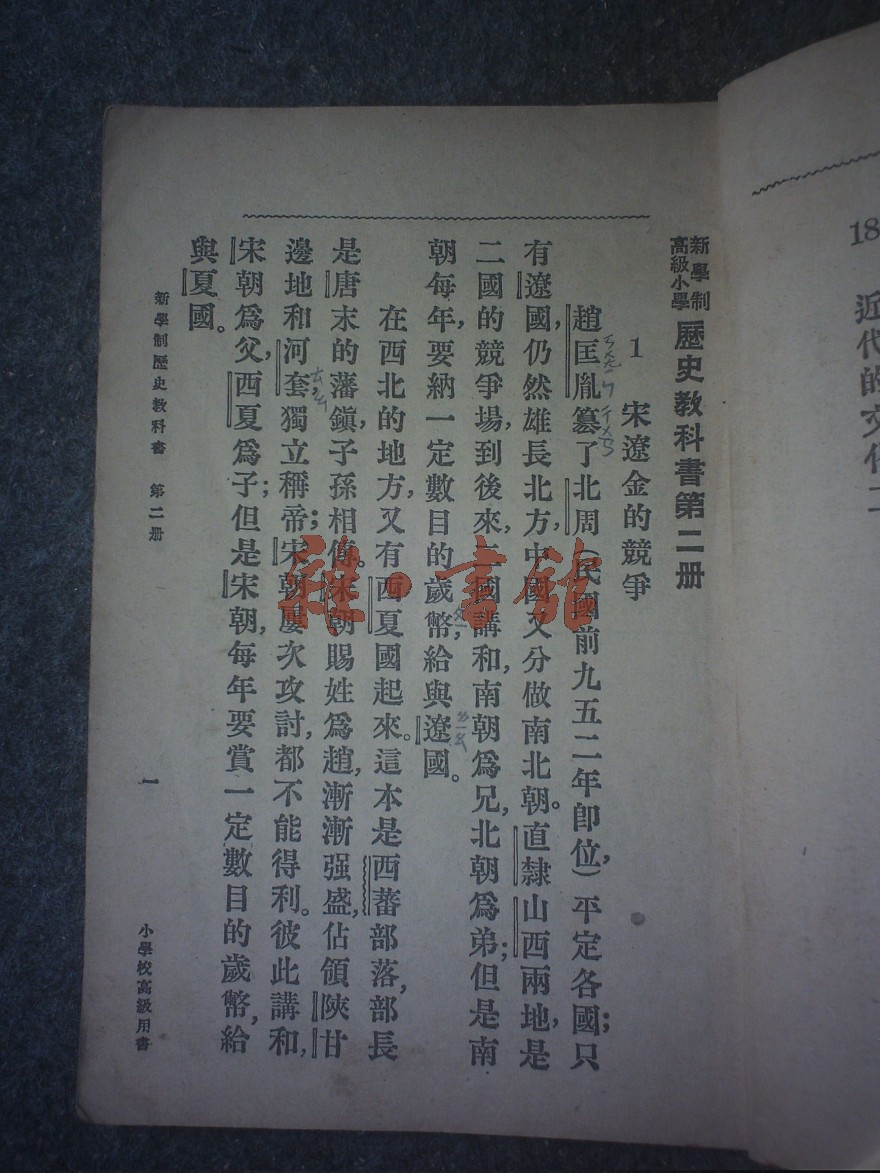 新學制
高級小學
歷史教科書第二册
1 宋遼金的競爭
趙匡胤篡了北周(民國前九五二年卽位,)平定各國;只
有遼國,仍然雄長北方,中國又分做南北朝。直隸山西兩地,是
二國的競爭場,到後來,二國講和,南朝爲兄,北朝爲弟;但是南
朝每年,要納一定數目的歲幣,給與遼國。
在西北的地方,又有西夏國起來。這本是西蕃部落,部長
是唐末的藩鎭,子孫相傳。宋朝賜姓爲趙,漸漸强盛,佔領陝甘
邊地和河套,獨立稱帝;宋朝屢次攻討,都不能得利。彼此講和,
宋朝爲父,西夏爲子;但是宋朝,每年要賞一定數目的歲幣,給
與夏國。
新學制歷史教科書 第二册
一
小學校高級用書
18
近代的文化二
雜·書館